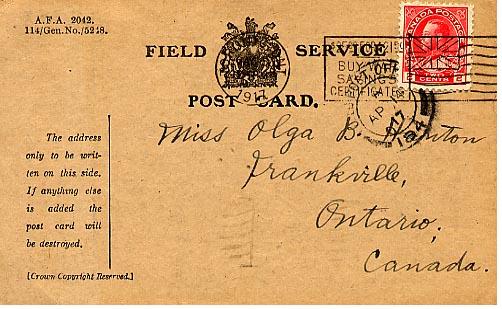 A.F.A. 2042.
114/Gen.No./5248.
FIELD SERVICE
POST CARD.
1917
BUY WAR
SAVINGS
CERTIFICATES
CANADA POSTAGE
2 TWO CENTS 2
AP
17
The address
only to be writ-
ten on this side.
If anything else
is added the
post card will
be destroyed.
[Crown Copyright Reserved.]
Miss Olga B.
Frankville,
Ontario,
Canada.